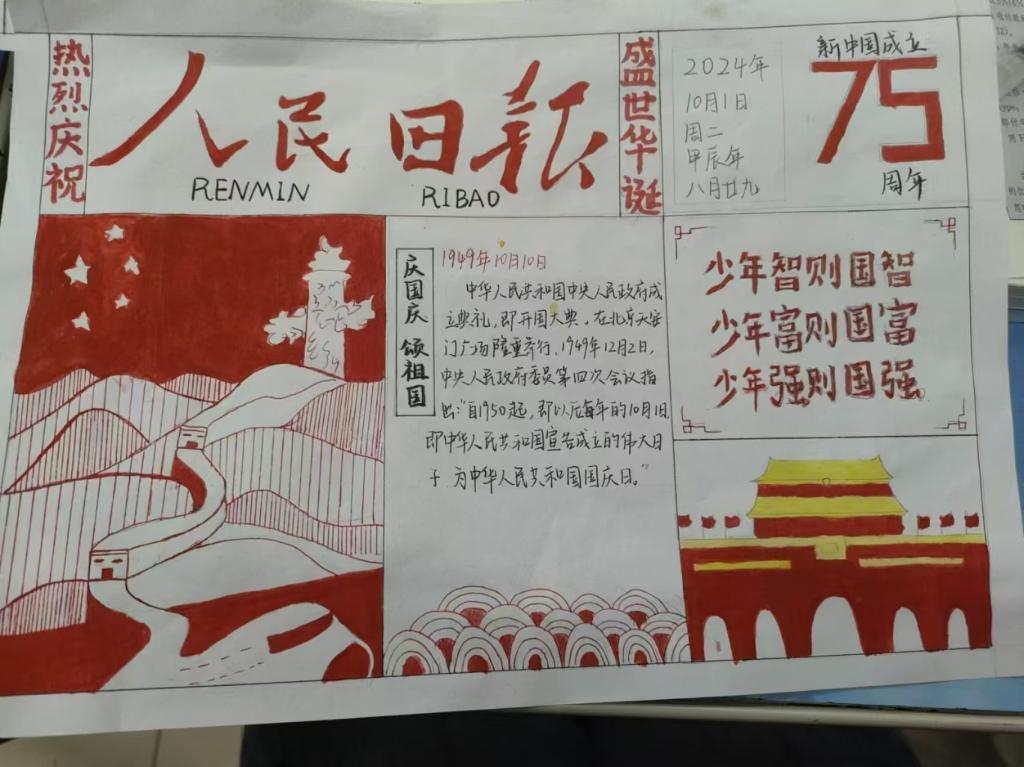 热烈庆祝
人民日報
RENMIN RIBAO
盛世华诞
2024年
10月1日
周二
甲辰年
八月廿九
新中国成立
75
周年
庆国庆 颂祖国
1949年10月10日
中华人民共和国中央人民政府成
立典礼,即开国大典,在北京天安
门广场隆重举行,1949年12月2日,
中央人民政府委员第四次会议指
出:"自1950起,即以后每年的10月1日,
即中华人民共和国宣告成立的伟大日
子,为中华人民共和国国庆日。"
少年智则国智
少年富则国富
少年强则国强